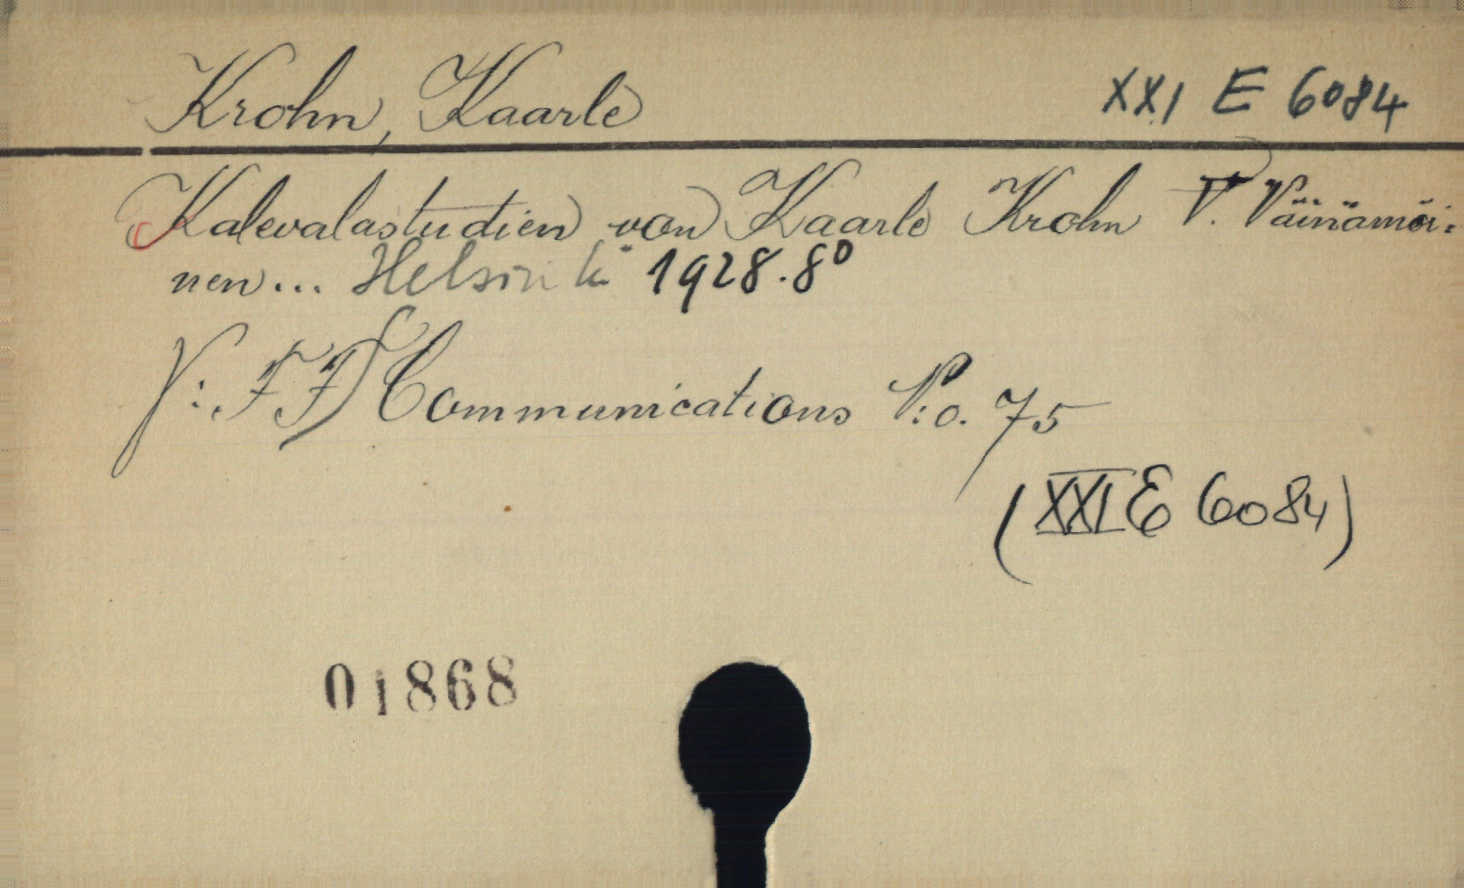 Krohn, Kaarle
XXI E 6084
Kalevalastudien von Kaarle Krohn V. Väinämöi-
nen... Helsinki 1928. 8°
V: FF Communications N:o. 75
(XXI E 6084)
01868